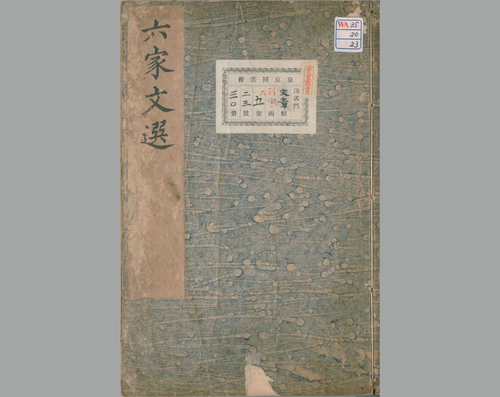 六家文選
WA 35
20
23
東京圖書館
漢書門
文章類
五
二三號
三〇冊